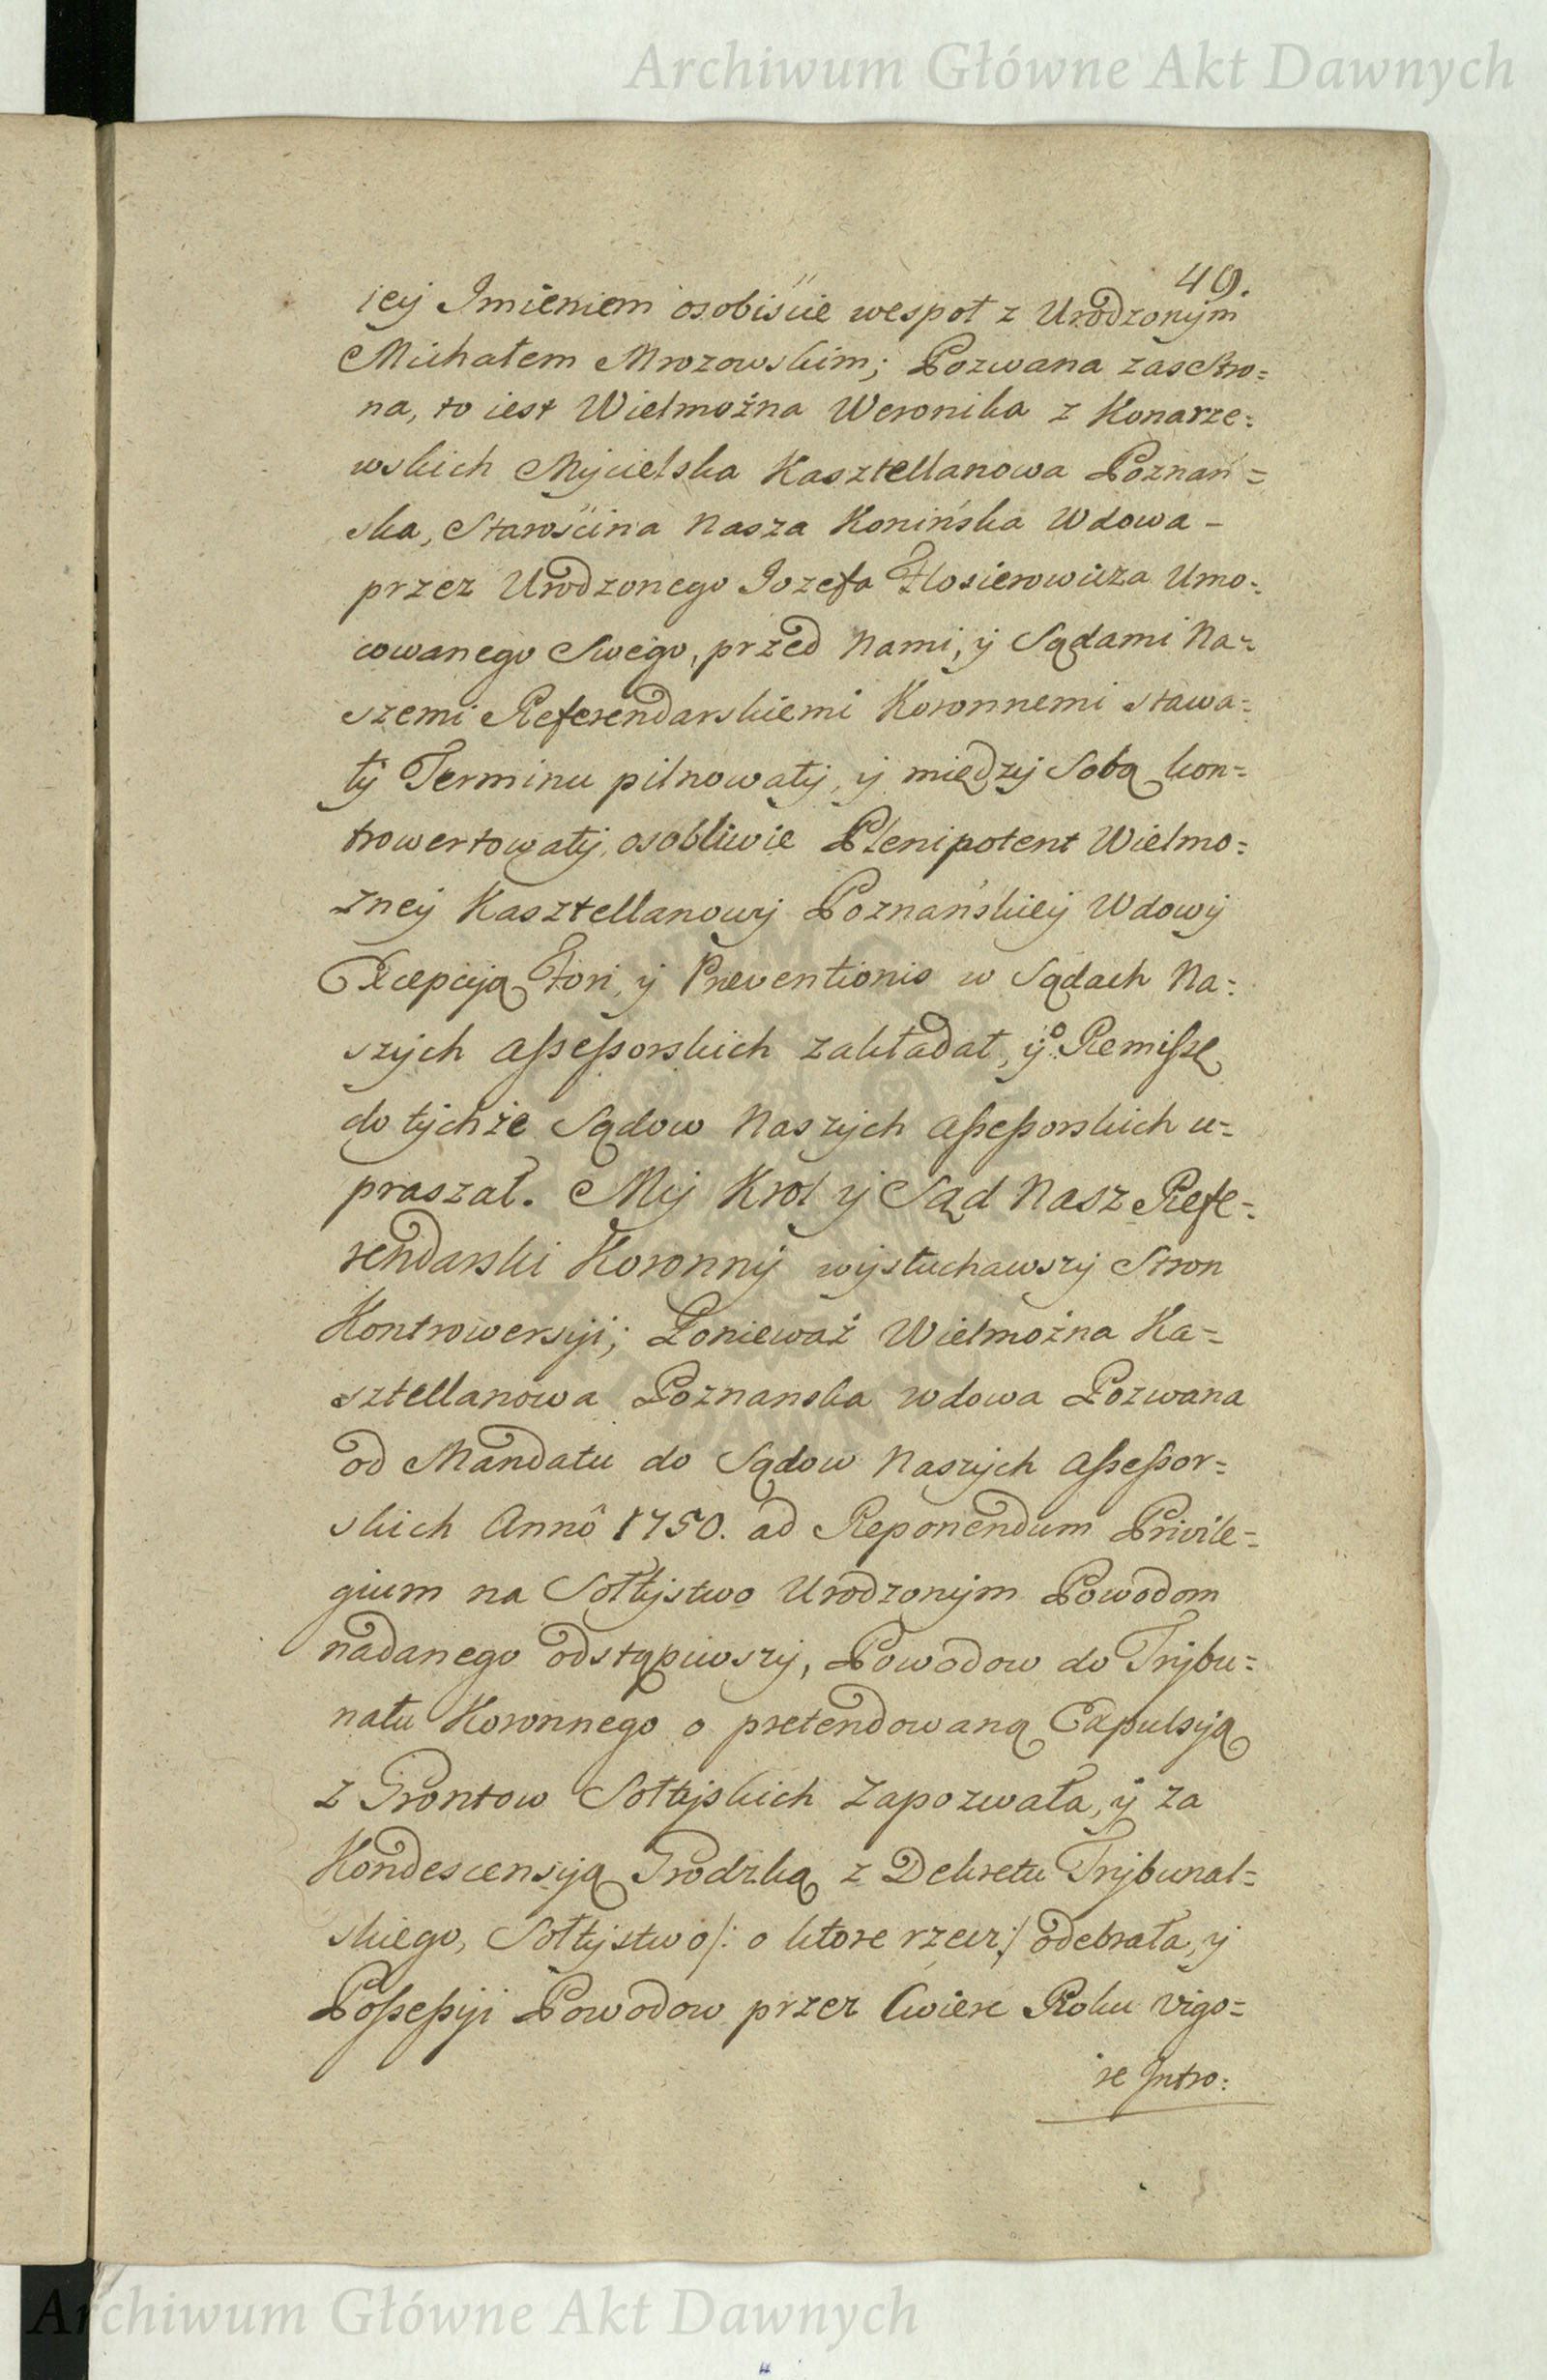 Archiwum Główne Akt Dawnych
49.
iey Imieniem osobiście wespoł z Urodzonym
Michałem Mrozowskim; Pozwana zas Stro=
na, to iest Wielmożna Weronika z Konarze=
wskich Mycielska Kasztellanowa Poznań=
ska, Starościna Nasza Konińska Wdowa -
przez Urodzonego Jozefa Flosierowicza Umo=
cowanego Swego, przed Nami, y Sądami Na=
szemi Referendarskiemi Koronnemi stawa=
ły Terminu pilnowały, y między Sobą kon=
trowertowały, osobliwie Plenipotent Wielmo=
żney Kasztellanowy Poznańskiey Wdowy
Excepcyą Fori, y Præventionis w Sądach Na=
szych Assessorskich zakładał, y o Remissę
do tychże Sądow Naszych Assessorskich u=
praszał. My Krol y Sąd Nasz Refe=
rendarski Koronny wysłuchawszy Stron
Kontrowersyi; Ponieważ Wielmożna Ka=
sztellanowa Poznanska wdowa Pozwana
od Mandatu do Sądow Naszych Assessor=
skich Annô 1750. ad Reponendum Privile=
gium na Sołtystwo Urodzonym Powodom
nadanego odstąpiwszy, Powodow do Trybu=
nału Koronnego o pretendowaną Expulsyą
z Grontow Sołtyskich Zapozwała, y za
Kondescensyą Grodzką z Dekretu Trybunal=
skiego, Sołtystwo /: o ktore rzecz :/ odebrała, y
Possessyi Powodow przez Cwierc Roku vigo=
re Intro:
Archiwum Główne Akt Dawnych